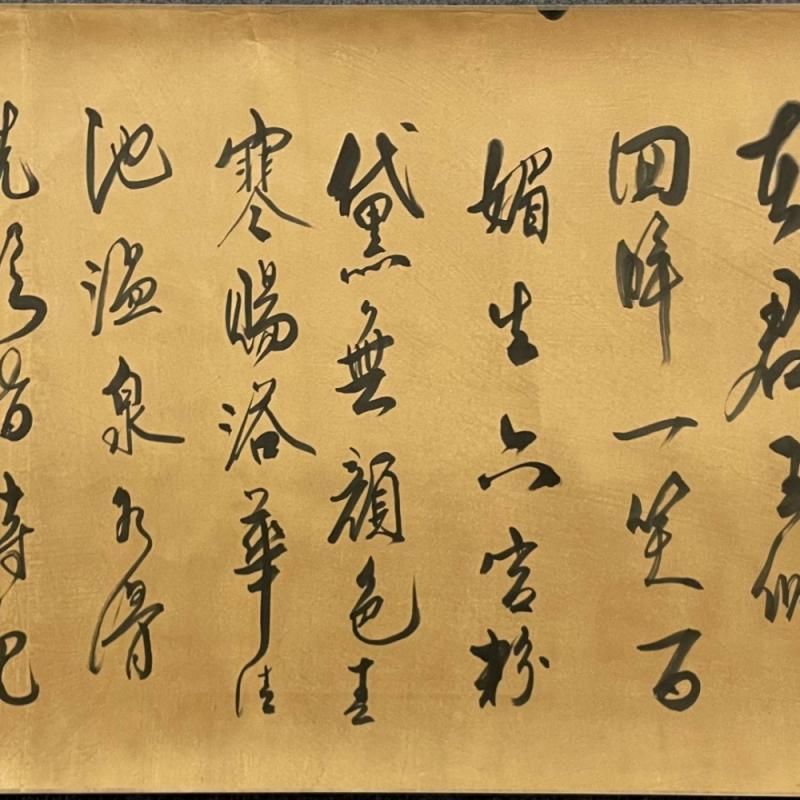 在君王側
回眸一笑百
媚生六宮粉
黛無顏色春
寒賜浴華清
池溫泉水滑
洗凝脂侍兒